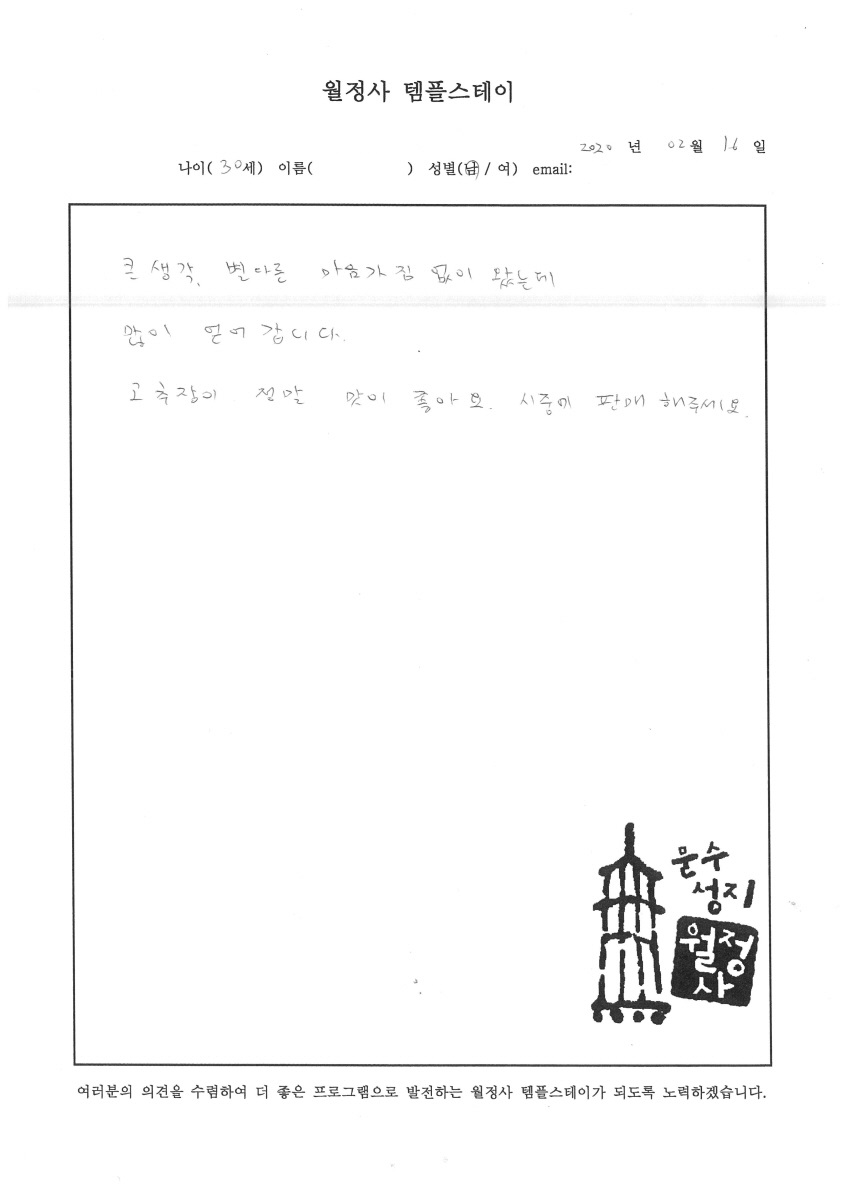 월정사 템플스테이
2020 년 02 월 16 일
나이( 30세) 이름( ) 성별(남 / 여) email:
큰 생각, 별다른 마음가짐 없이 왔는데
많이 얻어 갑니다.
고추장이 정말 맛이 좋아요. 시중에 판매 해주세요.
문수
성지
월정
사
여러분의 의견을 수렴하여 더 좋은 프로그램으로 발전하는 월정사 템플스테이가 되도록 노력하겠습니다.